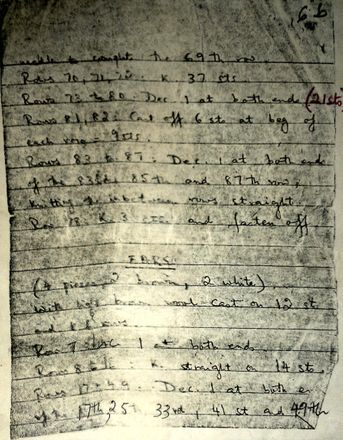 6b
the 69th row.
Rows 70, 71, 72. K 37 sts
Rows 73 to 80. Dec. 1 at both ends (21 sts)
Rows 81, 82. Cast off 6 sts at beg of
each row = 9 sts.
Rows 83 to 87. Dec. 1 at both ends
of the 83rd, 85th and 87th row,
knitting in between rows straight.
Row K 3 and fasten off
EARS
(4 pieces 2 brown, 2 white).
With brown wool cast on 12 st
and K rows.
Row 7 1 at both ends.
Rows 8 K straight on 14 sts.
Rows 17 49. Dec. 1 at both en
of the 17th, 25th 33rd, 41st and 49th